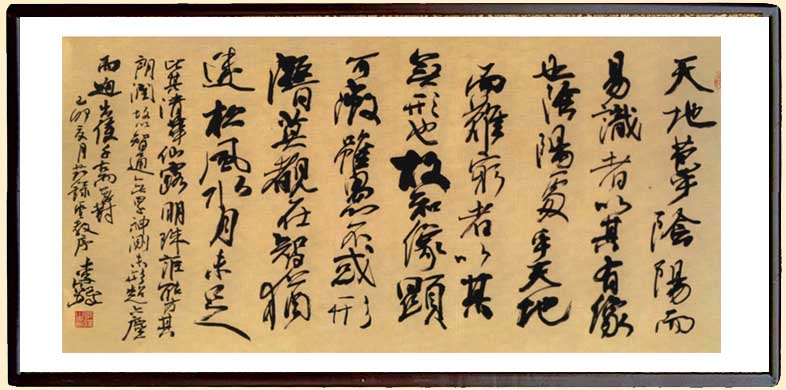 天地苞乎陰陽而
易識者以其有像
也陰陽處乎天地
而難窮者以其
無形也故知像顯
可徵雖愚不惑形
潛莫覩在智猶
迷松風水月未足
比其清華仙露明珠詎能方其
朗潤故以智通無累神測未形超六塵
而迥出千古對
己卯夏月錄聖教序 李